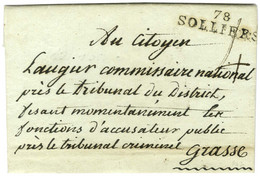 78
SOLLIERS
Au Citoyen
Laugier commissaire national
près le tribunal du District,
fesant momentanément les
fonctions d'accusateur public
près le tribunal criminel
Grasse